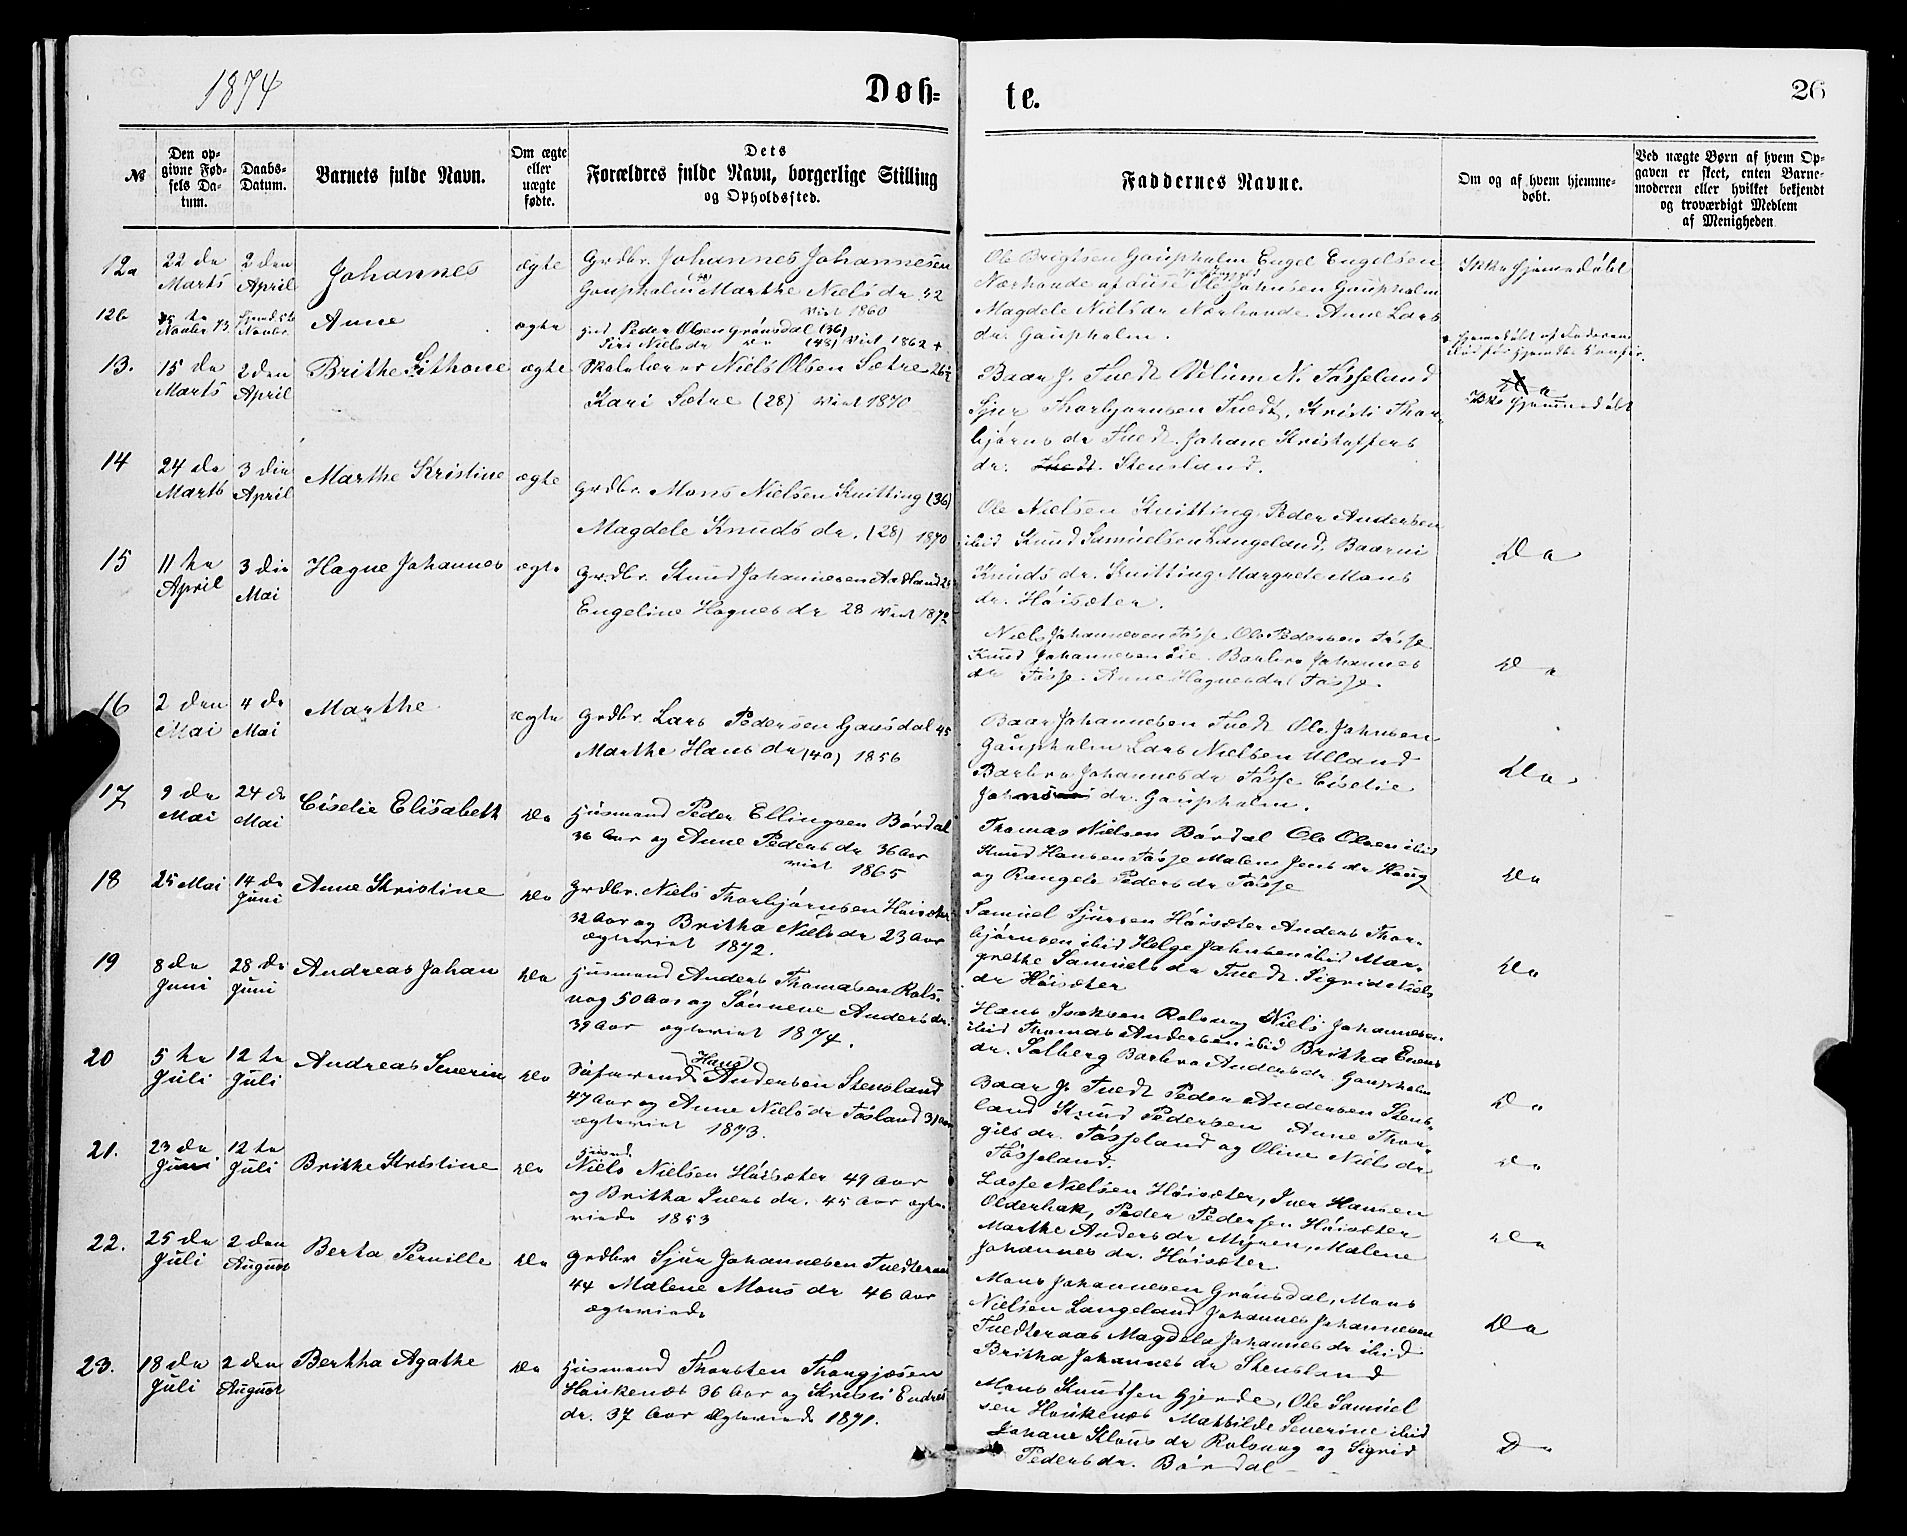 1874
Døb=
te.
26
№
Den op-
givne Fød-
sels Da-
tum.
Daabs-
Datum.
Barnets fulde Navn.
Om ægte
eller
uægte
fødte.
Dets
Forældres fulde Navn, borgerlige Stilling
og Opholdssted.
Faddernes Navne.
Om og af hvem hjemme-
døbt.
Ved uægte Børn af hvem Op-
gaven er skeet, enten Barne-
moderen eller hvilket bekjendt
og troværdigt Medlem
af Menigheden
12a
22 de
Marts
2 den
April
Johannes
ægte
Grdbr. Johannes Johannesen
Gaupholm Marthe Nielsdr. 32
viet 1860
Ole Brigtsen Gaupholm Engel Engelsen
Nærhovde Ole Johnsen Gaupholm
Magdele Nielsdr Nærhovde Anne Lars
dr. Gaupholm.
Ikke hjemmedøbt
12b
Novbr 73
Novbr
Anne
ægte
Peder Olsen Grønsdal (36)
Siri Nielsdr do (48) viet 1862
hjemedøbt af Faderen
13.
15 de
Marts
2 den
April
Brithe Lithone
ægte
Skolelærer Niels Olsen Sætre 26
Kari Sætre (28) viet 1870
Baar J. Tuedt N. Tøsseland
Sjur Thorbjørnsen Tuedt, Kristi Thor-
bjørns dr Tuedt. Johane Kristoffers
dr. Tuedt. Stensland.
Ikke hjemmedøbt
14
24 de
Marts
3 die
April
Marthe Kristine
ægte
Grdbr. Mons Nielsen Knitting (36)
Magdele Knuds dr. (28) 1870
Ole Nielsen Knitting Peder Andersen
ibid Knud Samuelsen Langeland, Baarni
Knuds dr. Knitting Margrete Mons
dr. Høisæter.
Do
15
11 te
April
3 die
Mai
Hagne Johannes
ægte
Grdbr. Knud Johannesen Aadland 26
Engeline Hagnesdr 28 viet 1872
Niels Johannesen Tøsse Ole Pedersen Tøsse
Knud Johannesen Lie. Barbro Johannes
dr Tøsse. Anne Hagnesdr Tøsse.
Do
16
2 den
Mai
4 de
Mai
Marthe
ægte
Grdbr. Lars Pedersen Gaasdal 45
Marthe Hans dr (40) 1856
Baar Johannesen Tuedt Ole Johnsen
Gaupholm Lars Nielsen Ulland
Barbro Johannesdr Tøsse Ciselie
dr. Gaupholm.
Do
17
9 de
Mai
24 de
Mai
Ciselie Elisabeth
Do
Husmand Peder Ellingsen Børdal
36 Aar og Anne Peders dr 36 Aar
viet 1865
Thomas Nielsen Børdal Ole Olsen ibid
Knud Hansen Tøsse Malene Jens dr Haug
og Rangele Peders dr Tøsse
Do
18
25 Mai
14 de
Juni
Anne Kristine
Do
Grdbr. Niels Thorbjørnsen Høisæter
32 Aar og Britha Nielsdr 23 Aar
ægteviet 1872.
Samuel Sjursen Høisæter Anders Thor-
bjørnsen ibid Helge Johnsen ibid Mar-
grethe Samuels dr Tuedt. Sigrid Niels
dr Høisæter
Do
19
8 de
Juni
28 de
Juni
Andreas Johan
Do
Husmand Anders Thomasen Rols-
vog 50 Aar og Sønneve Andersdr
39 Aar ægteviet 1874.
Hans Isaksen Rolsvog Niels Johannesen
ibid Thomas Andersen ibid Britha Evens
dr. Solberg Barbro Andersdr. Gaupholm
Do
20
5 te
Juli
12 te
Juli
Andreas Severin
Do
Søfarende Hans Andersen Stensland
47 Aar og Anne Nielsdr Tøsland 31 Aar
ægteviet 1873.
Baar J. Tuedt Peder Andersen Stens-
land Knud Pedersen Anne Thor-
gils dr. Tøsseland og Oline Niels dr
Tøsseland.
Do
21.
23 de
Juni
12 te
Juli
Brithe Kristine
Do
Husmd.
Niels Nielsen Høisæter 49 Aar
og Britha Ivers dr. 45 Aar ægte-
viede 1853
Lasse Nielsen Høisæter, Iver Hansen
Olderhak, Peder Pedersen Høisæter
Marthe Anders dr Myren, Malene
Johannes dr. Høisæter
Do
22.
25 de
Juli
2 den
August
Berta Pernille
Do
Grdbr Sjur Johannesen Tuedteraas
44 Malene Mons dr 46 Aar
ægteviede
Mons Johannesen Grønsdal, Mons
Nielsen Langeland Johannes Johannesen
Tuedteraas Magdela Johannes dr ibid
Britha Johannes dr Stensland
Do
23.
18 de
Juli
2 den
August
Bertha Agathe
Do
Husmand Thorsten Thorgjøsen
Haukenæs 36 Aar og Kristi Endres
dr. 37 Aar Ægteviede 1871.
Mons Knudsen Gjerde, Ole Samuel
sen Haukenæs Mathilde Severine ibid
Johane Klaus dr Rolsvog og Sigrid
Pedersdr. Børdal
Do